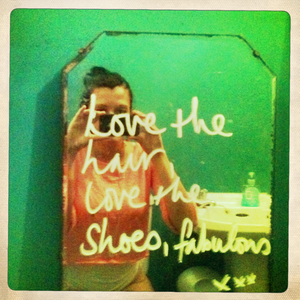 Love the
hair
Love the
Shoes, fabulous
xxx